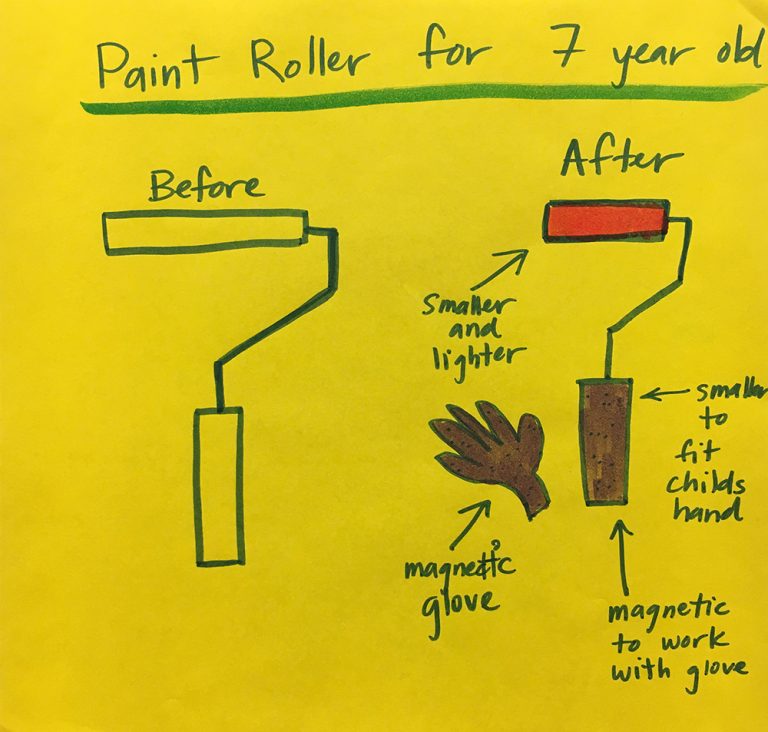 Paint Roller for 7 year old
Before
After
smaller
and
lighter
smaller
to
fit
childs
hand
magnetic
glove
magnetic
to work
with glove